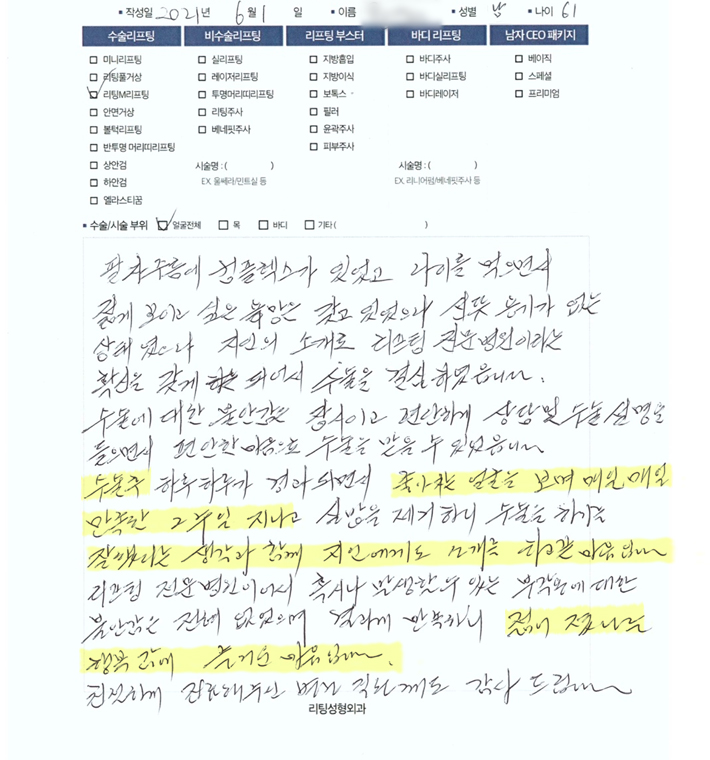 • 작성일 2021년 6월 1일 • 이름 • 성별 남 • 나이 61
수술리프팅 비수술리프팅 리프팅 부스터 바디 리프팅 남자 CEO 패키지
미니리프팅 실리프팅 지방흡입 바디주사 베이직
리팅풀거상 레이저리프팅 지방이식 바디실리프팅 스페셜
리팅M리프팅 투명머리띠리프팅 보톡스 바디레이저 프리미엄
안면거상 리팅주사 필러
볼턱리프팅 베네핏주사 윤곽주사
반투명 머리띠리프팅 피부주사
상안검 시술명 : ( ) 시술명 : ( )
하안검 EX. 울쎄라/민트실 등 EX. 리니어펌/베네핏주사 등
엘라스티꿈
• 수술/시술 부위 얼굴전체 목 바디 기타 ( )
팔자주름에 컴플렉스가 있었고 나이를 먹으면서
젊게 보이고 싶은 욕망은 갖고 있었으나 선뜻 용기가 없는
상태 였으나 지인의 소개로 리프팅 전문병원이라는
확신을 갖게 되어서 수술을 결심하였읍니다.
수술에 대한 불안감은 잠시이고 편안하게 상담및 수술 설명을
들으면서 편안한 마음으로 수술을 받을 수 있었읍니다
수술후 하루하루가 경과 되면서 좋아지는 얼굴을 보며 매일매일
만족한 2주일 지나고 실밥을 제거하니 수술을 하기를
잘했다는 생각과 함께 지인에게도 소개를 하고픈 마음입니다
리프팅 전문병원이어서 혹시나 발생할 수 있는 부작용에 대한
불안감은 전혀 없었으며 결과에 만족하니 젊어 졌다는
행복감에 즐거운 마음입니다.
친절하게 잘해주신 병원 직원께도 감사 드립니다
리팅성형외과